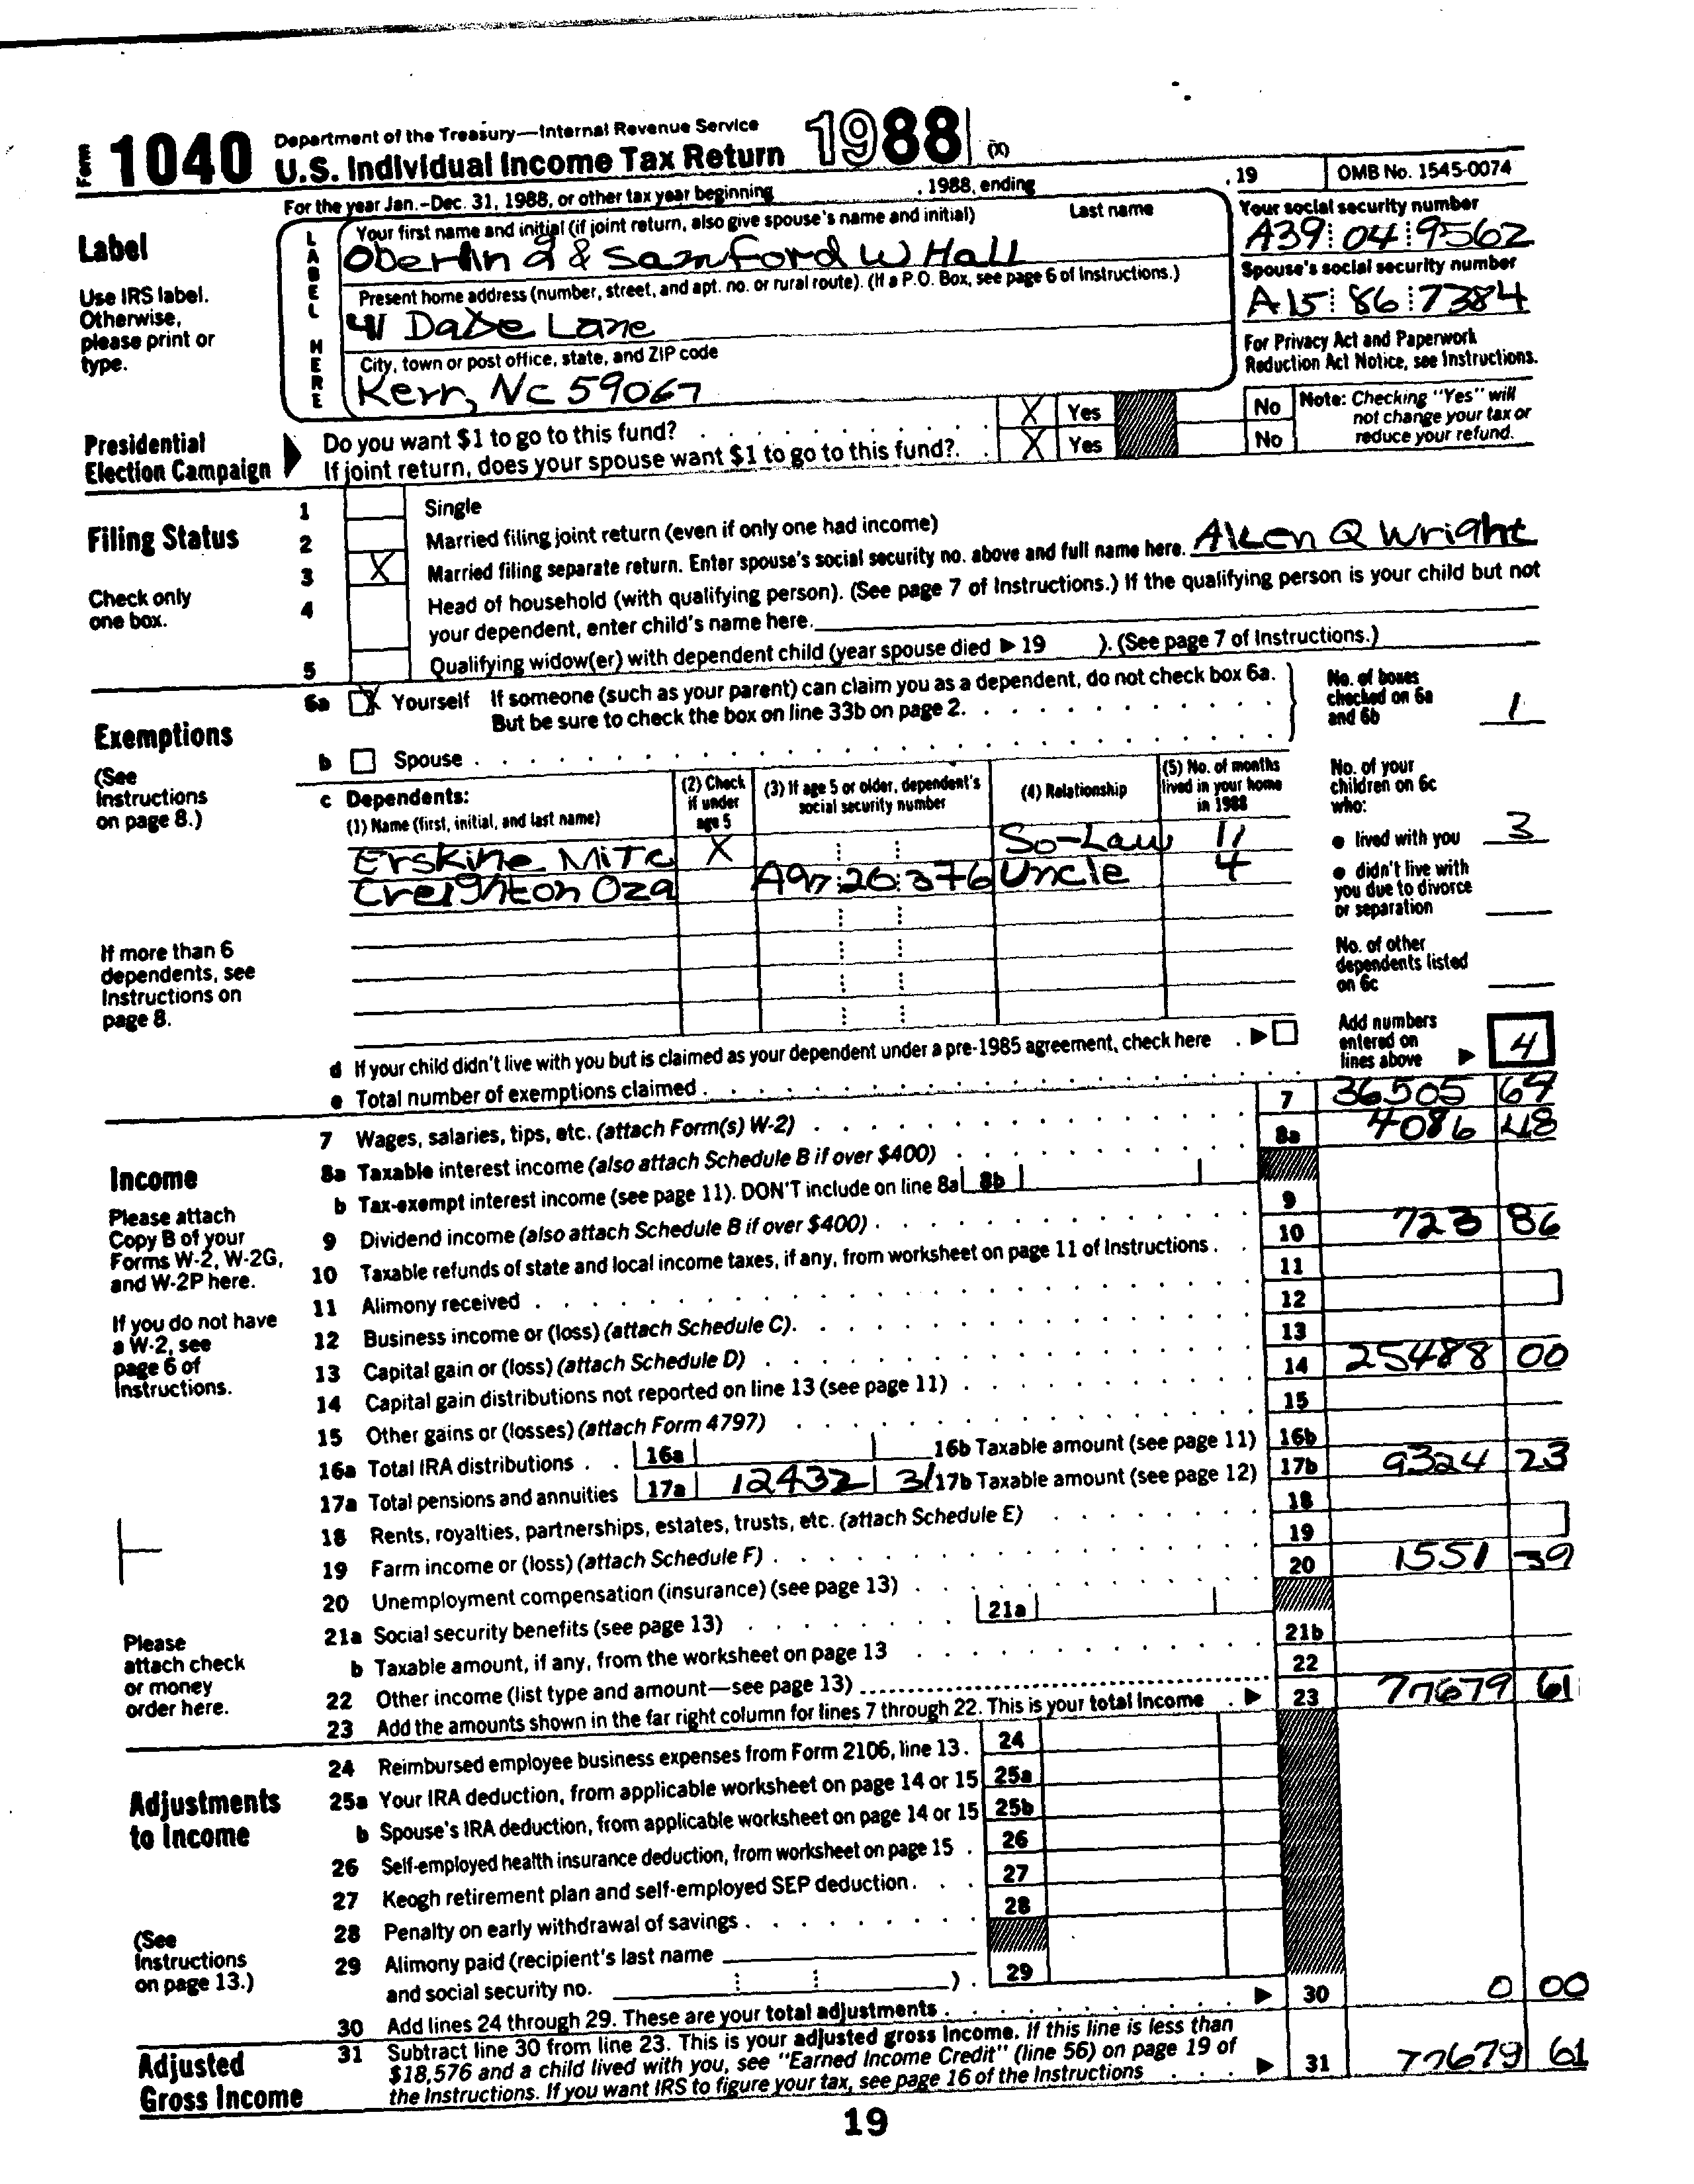 Form 1040 Department of the Treasury—Internal Revenue Service
U.S. Individual Income Tax Return 1988 (X)
For the year Jan.-Dec. 31, 1988, or other tax year beginning , 1988, ending , 19 OMB No. 1545-0074
Label
Use IRS label.
Otherwise,
please print or
type.
LABEL HERE
Your first name and initial (if joint return, also give spouse's name and initial) Last name
Oberlin & Samford W Hall
Your social security number
A39 04 9562
Present home address (number, street, and apt. no. or rural route). (If a P.O. Box, see page 6 of Instructions.)
41 Dabe Lane
Spouse's social security number
A15 86 7384
City, town or post office, state, and ZIP code
Kerr, NC 59067
For Privacy Act and Paperwork
Reduction Act Notice, see Instructions.
Presidential
Election Campaign
Do you want $1 to go to this fund? X Yes No
If joint return, does your spouse want $1 to go to this fund? X Yes No
Note: Checking "Yes" will
not change your tax or
reduce your refund.
Filing Status
Check only
one box.
1 Single
2 Married filing joint return (even if only one had income)
3 X Married filing separate return. Enter spouse's social security no. above and full name here. Allen Q Wright
4 Head of household (with qualifying person). (See page 7 of Instructions.) If the qualifying person is your child but not
your dependent, enter child's name here.
5 Qualifying widow(er) with dependent child (year spouse died ▶ 19 ). (See page 7 of Instructions.)
Exemptions
(See
Instructions
on page 8.)
6a X Yourself If someone (such as your parent) can claim you as a dependent, do not check box 6a.
But be sure to check the box on line 33b on page 2.
No. of boxes
checked on 6a
and 6b 1
b Spouse
c Dependents:
(1) Name (first, initial, and last name)
(2) Check
if under
age 5
(3) If age 5 or older, dependent's
social security number
(4) Relationship
(5) No. of months
lived in your home
in 1988
Erskine Mitc X So-Law 11
Creighton Oza A97 26 376 Uncle 4
No. of your
children on 6c
who:
● lived with you 3
● didn't live with
you due to divorce
or separation
No. of other
dependents listed
on 6c
If more than 6
dependents, see
Instructions on
page 8.
d If your child didn't live with you but is claimed as your dependent under a pre-1985 agreement, check here ▶
e Total number of exemptions claimed
Add numbers
entered on
lines above ▶ 4
Income
Please attach
Copy B of your
Forms W-2, W-2G,
and W-2P here.
If you do not have
a W-2, see
page 6 of
Instructions.
Please
attach check
or money
order here.
7 Wages, salaries, tips, etc. (attach Form(s) W-2) 7 36505 69
8a Taxable interest income (also attach Schedule B if over $400) 8a 4086 48
b Tax-exempt interest income (see page 11). DON'T include on line 8a 8b
9 Dividend income (also attach Schedule B if over $400) 9
10 Taxable refunds of state and local income taxes, if any, from worksheet on page 11 of Instructions 10 723 86
11 Alimony received 11
12 Business income or (loss) (attach Schedule C) 12
13 Capital gain or (loss) (attach Schedule D) 13
14 Capital gain distributions not reported on line 13 (see page 11) 14 25488 00
15 Other gains or (losses) (attach Form 4797) 15
16a Total IRA distributions 16a 16b Taxable amount (see page 11) 16b
17a Total pensions and annuities 17a 12432 31 17b Taxable amount (see page 12) 17b 9324 23
18 Rents, royalties, partnerships, estates, trusts, etc. (attach Schedule E) 18
19 Farm income or (loss) (attach Schedule F) 19
20 Unemployment compensation (insurance) (see page 13) 20 1551 39
21a Social security benefits (see page 13) 21a
b Taxable amount, if any, from the worksheet on page 13 21b
22 Other income (list type and amount—see page 13) 22
23 Add the amounts shown in the far right column for lines 7 through 22. This is your total income ▶ 23 77679 61
Adjustments
to Income
(See
Instructions
on page 13.)
24 Reimbursed employee business expenses from Form 2106, line 13. 24
25a Your IRA deduction, from applicable worksheet on page 14 or 15 25a
b Spouse's IRA deduction, from applicable worksheet on page 14 or 15 25b
26 Self-employed health insurance deduction, from worksheet on page 15 26
27 Keogh retirement plan and self-employed SEP deduction 27
28 Penalty on early withdrawal of savings 28
29 Alimony paid (recipient's last name
and social security no. ) 29
30 Add lines 24 through 29. These are your total adjustments ▶ 30 0 00
Adjusted
Gross Income
31 Subtract line 30 from line 23. This is your adjusted gross income. If this line is less than
$18,576 and a child lived with you, see "Earned Income Credit" (line 56) on page 19 of
the Instructions. If you want IRS to figure your tax, see page 16 of the Instructions ▶ 31 77679 61
19